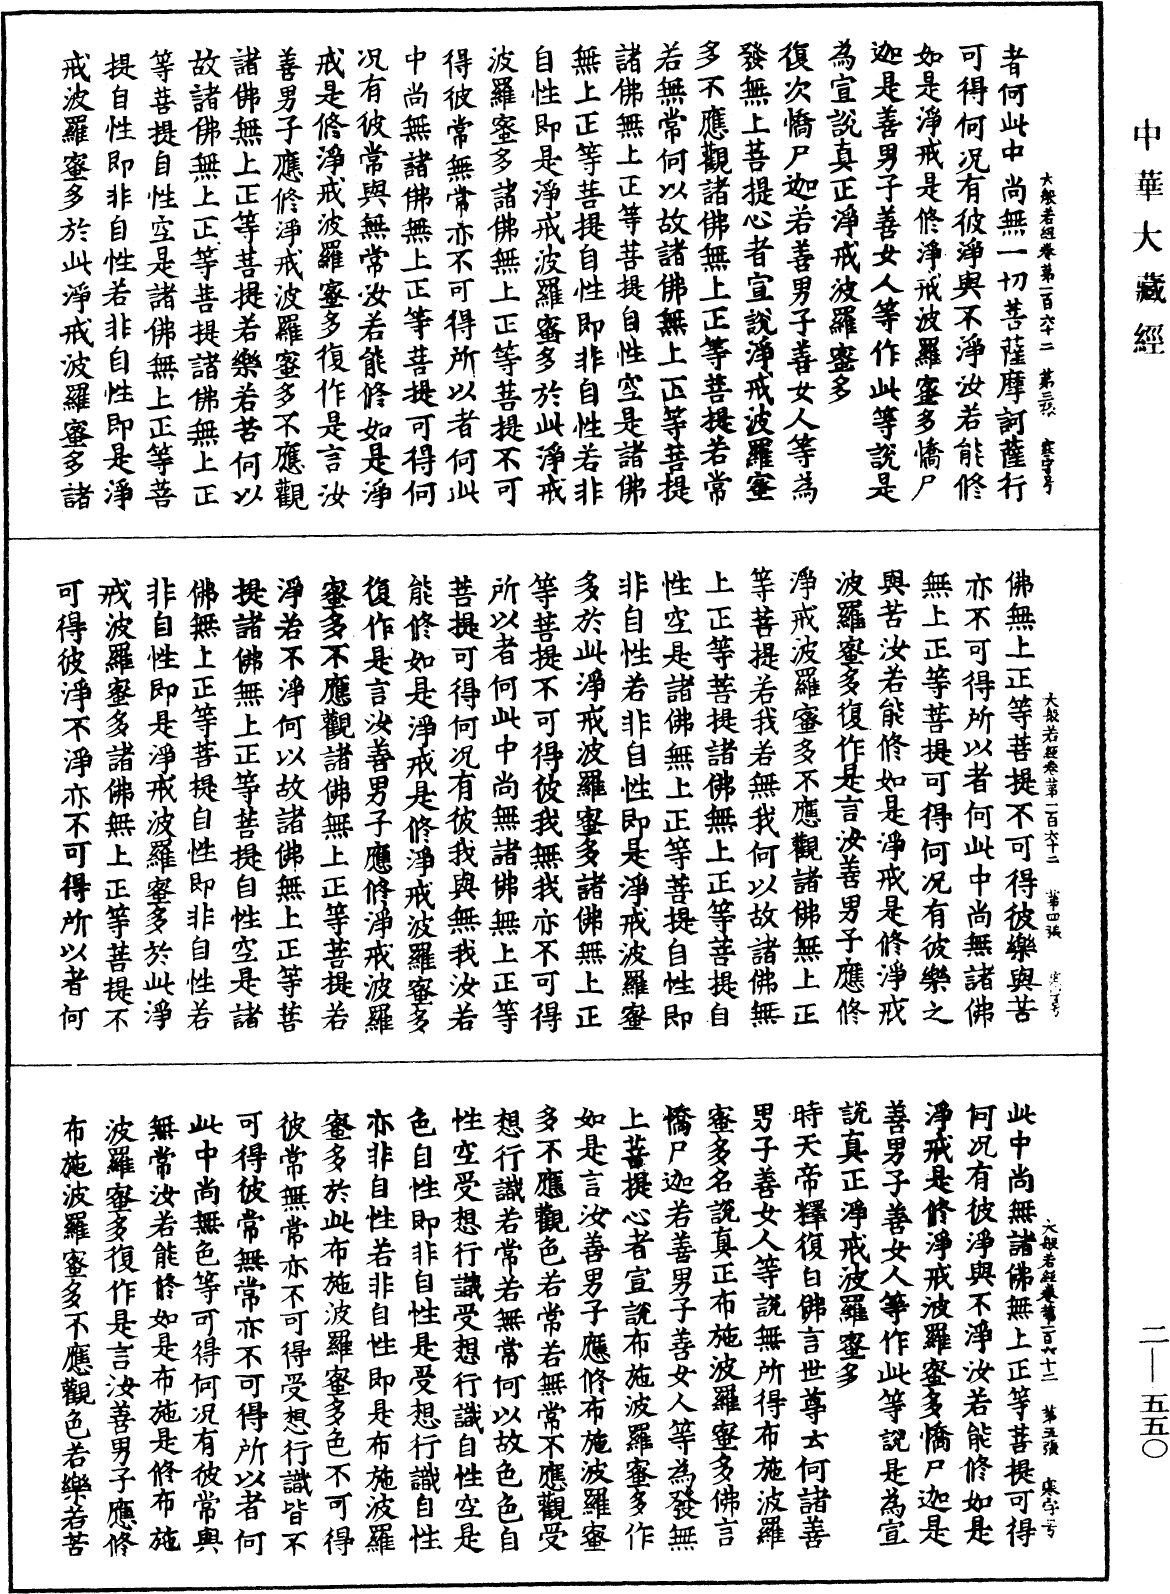 中華大藏經
二—五五〇
大般若經卷第一百六十二 第三張 寒字号
者何此中尚無一切菩薩摩訶薩行
可得何况有彼淨與不淨汝若能修
如是淨戒是修淨戒波羅蜜多憍尸
迦是善男子善女人等作此等說是
為宣說真正淨戒波羅蜜多
復次憍尸迦若善男子善女人等為
發無上菩提心者宣說淨戒波羅蜜
多不應觀諸佛無上正等菩提若常
若無常何以故諸佛無上正等菩提
諸佛無上正等菩提自性空是諸佛
無上正等菩提自性即非自性若非
自性即是淨戒波羅蜜多於此淨戒
波羅蜜多諸佛無上正等菩提不可
得彼常無常亦不可得所以者何此
中尚無諸佛無上正等菩提可得何
况有彼常與無常汝若能修如是淨
戒是修淨戒波羅蜜多復作是言汝
善男子應修淨戒波羅蜜多不應觀
諸佛無上正等菩提若樂若苦何以
故諸佛無上正等菩提諸佛無上正
等菩提自性空是諸佛無上正等菩
提自性即非自性若非自性即是淨
戒波羅蜜多於此淨戒波羅蜜多諸
大般若經卷第一百六十二 第四張
佛無上正等菩提不可得彼樂與苦
亦不可得所以者何此中尚無諸佛
無上正等菩提可得何况有彼樂之
與苦汝若能修如是淨戒是修淨戒
波羅蜜多復作是言汝善男子應修
淨戒波羅蜜多不應觀諸佛無上正
等菩提若我若無我何以故諸佛無
上正等菩提諸佛無上正等菩提自
性空是諸佛無上正等菩提自性即
非自性若非自性即是淨戒波羅蜜
多於此淨戒波羅蜜多諸佛無上正
等菩提不可得彼我無我亦不可得
所以者何此中尚無諸佛無上正等
菩提可得何况有彼我與無我汝若
能修如是淨戒是修淨戒波羅蜜多
復作是言汝善男子應修淨戒波羅
蜜多不應觀諸佛無上正等菩提若
淨若不淨何以故諸佛無上正等菩
提諸佛無上正等菩提自性空是諸
佛無上正等菩提自性即非自性若
非自性即是淨戒波羅蜜多於此淨
戒波羅蜜多諸佛無上正等菩提不
可得彼淨不淨亦不可得所以者何
大般若經卷第一百六十二 第五張 寒字号
此中尚無諸佛無上正等菩提可得
何况有彼淨與不淨汝若能修如是
淨戒是修淨戒波羅蜜多憍尸迦是
善男子善女人等作此等說是為宣
說真正淨戒波羅蜜多
時天帝釋復白佛言世尊云何諸善
男子善女人等說無所得布施波羅
蜜多名說真正布施波羅蜜多佛言
憍尸迦若善男子善女人等為發無
上菩提心者宣說布施波羅蜜多作
如是言汝善男子應修布施波羅蜜
多不應觀色若常若無常不應觀受
想行識若常若無常何以故色色自
性空受想行識受想行識自性空是
色自性即非自性是受想行識自性
亦非自性若非自性即是布施波羅
蜜多於此布施波羅蜜多色不可得
彼常無常亦不可得受想行識皆不
可得彼常無常亦不可得所以者何
此中尚無色等可得何况有彼常與
無常汝若能修如是布施是修布施
波羅蜜多復作是言汝善男子應修
布施波羅蜜多不應觀色若樂若苦